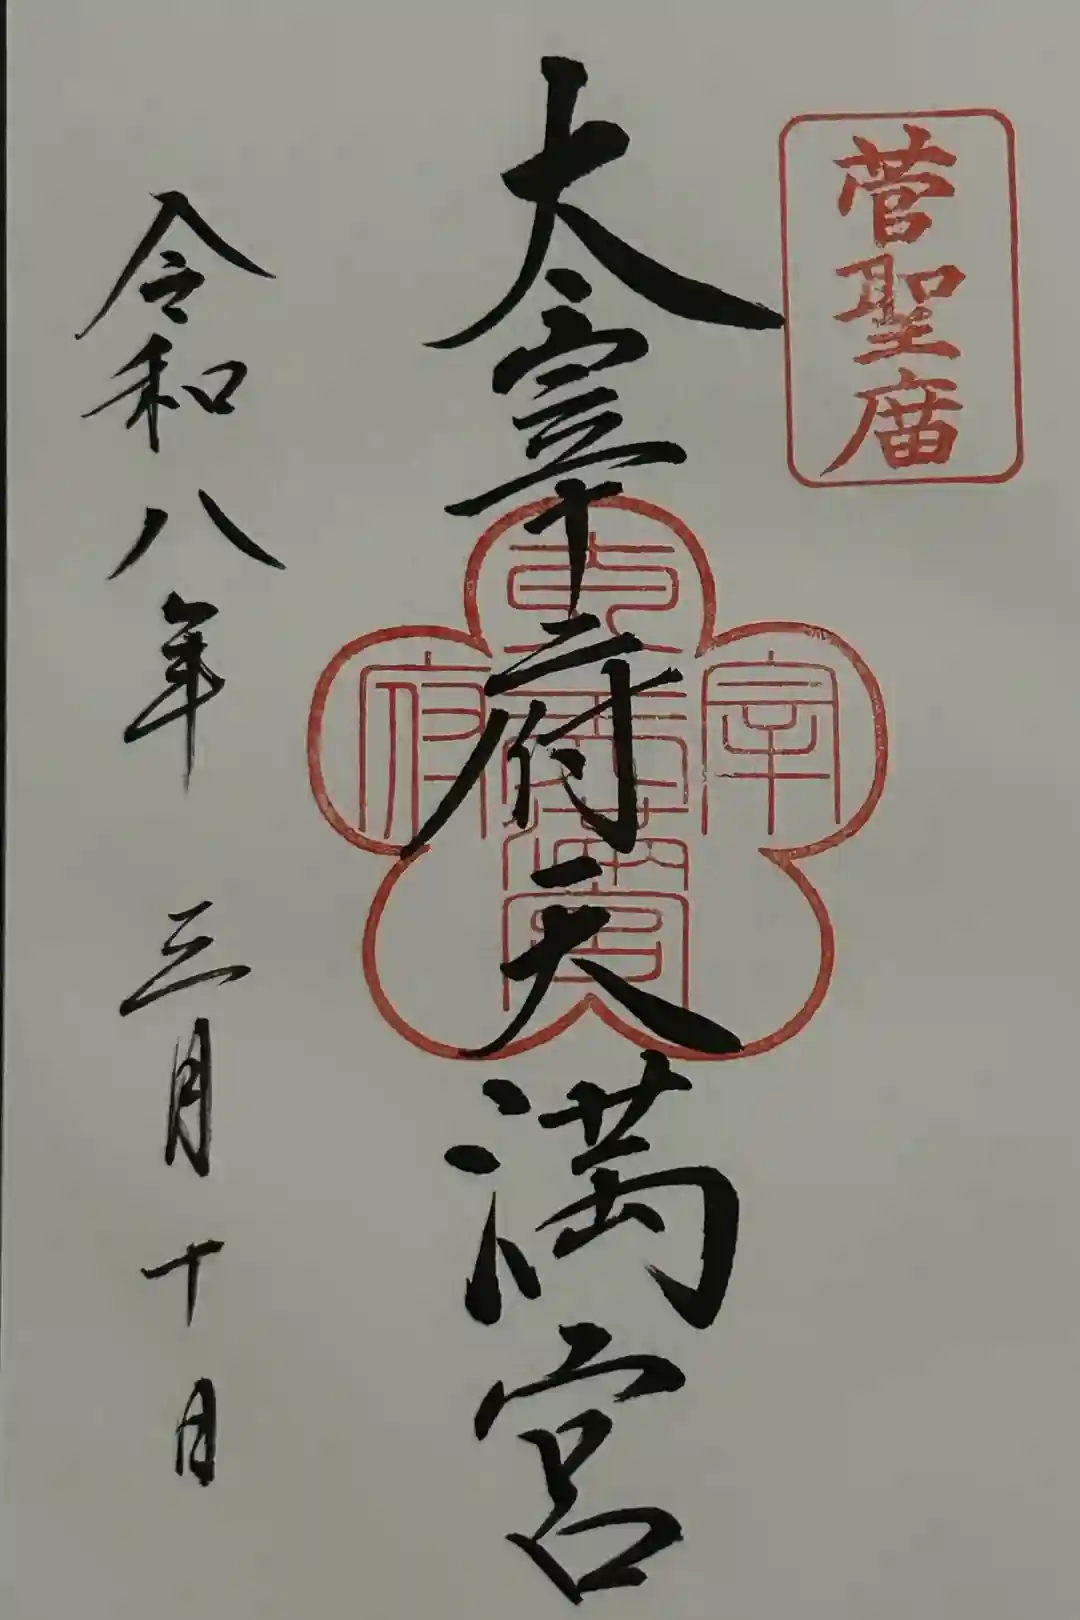 菅聖庿
太宰府天満宮
太宰府天満宮
令和八年 三月十日